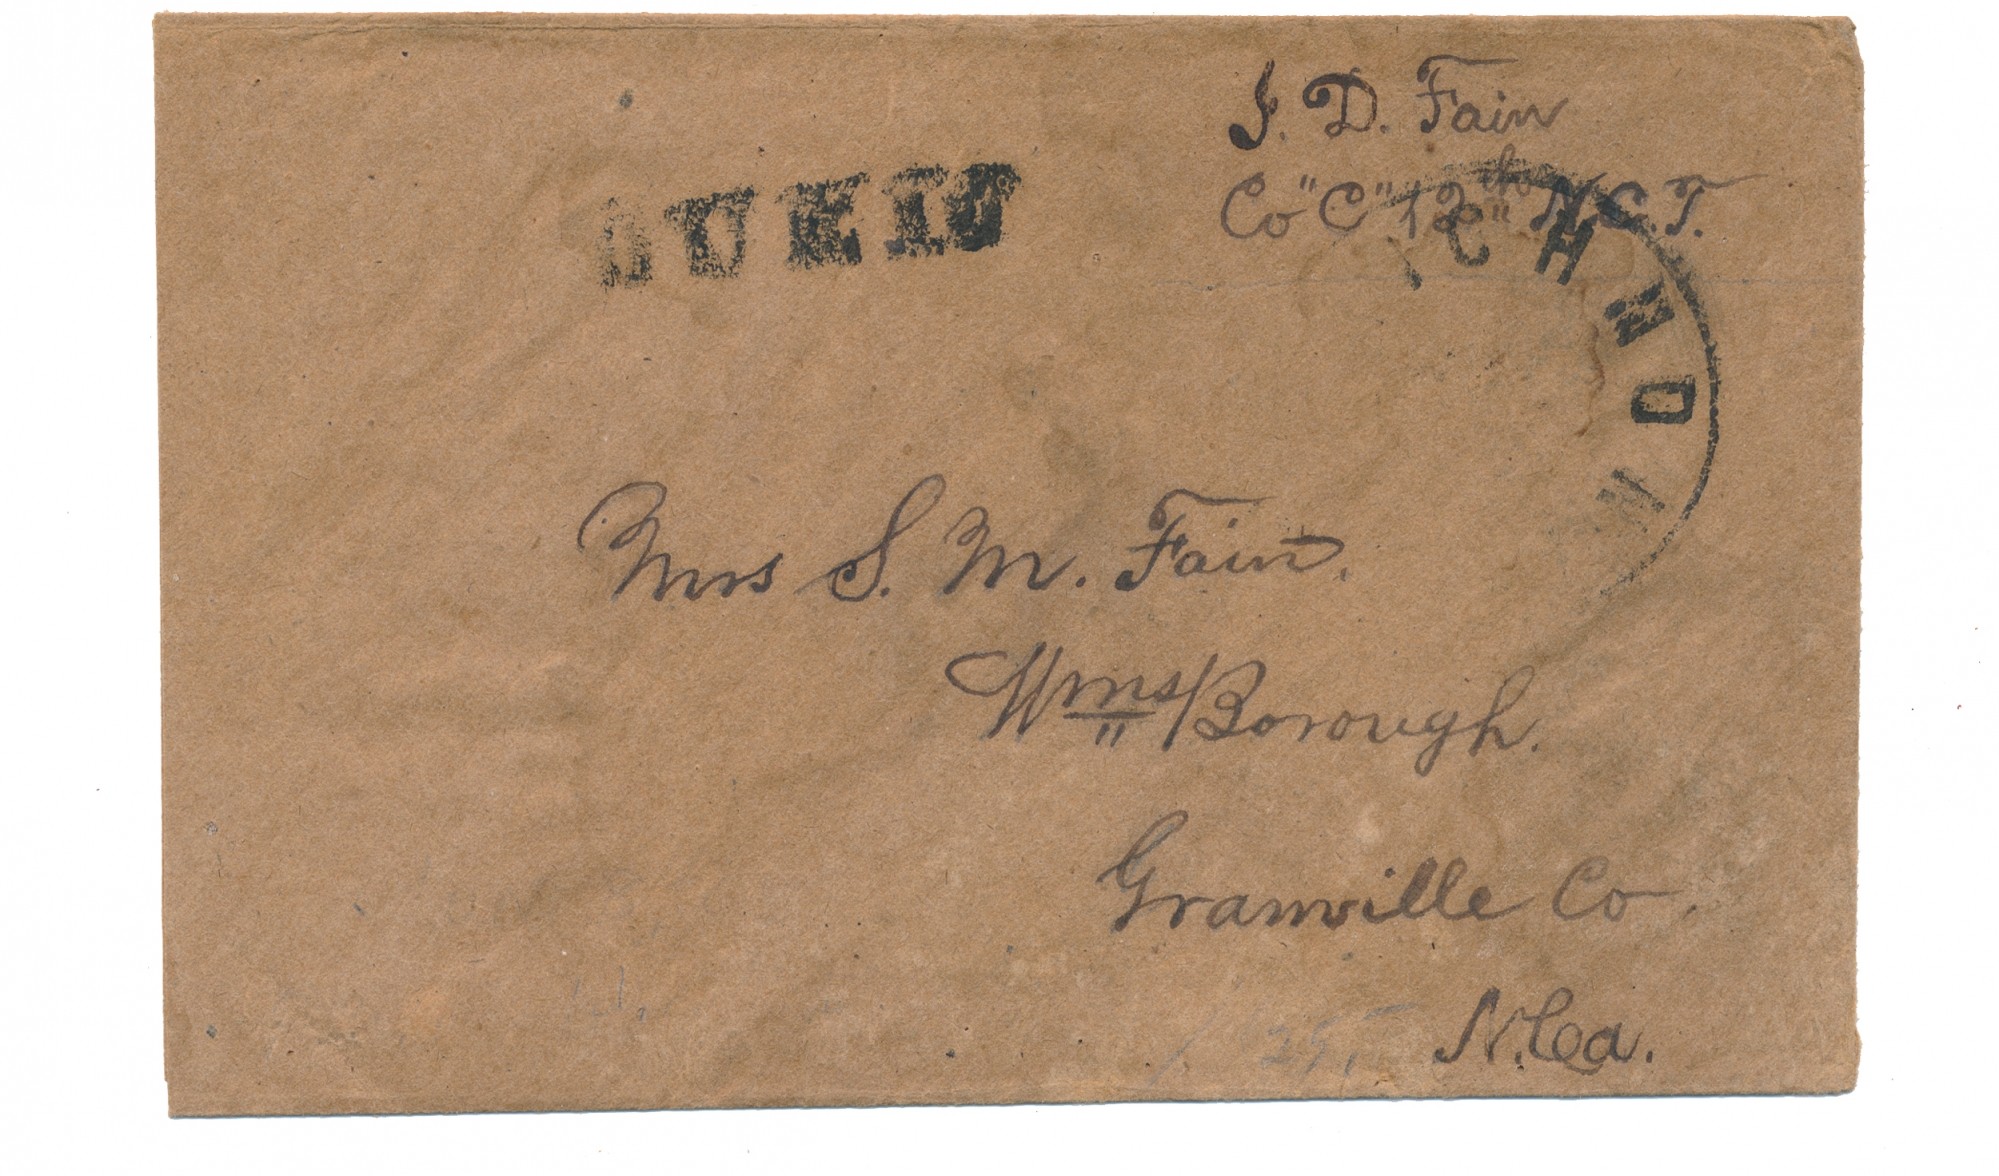 J. D. Fain
Co "C" 12th N.C.T.
ICHMON
Mrs S. M. Fain.
Wms/Borough.
Granville Co.
N. Ca.